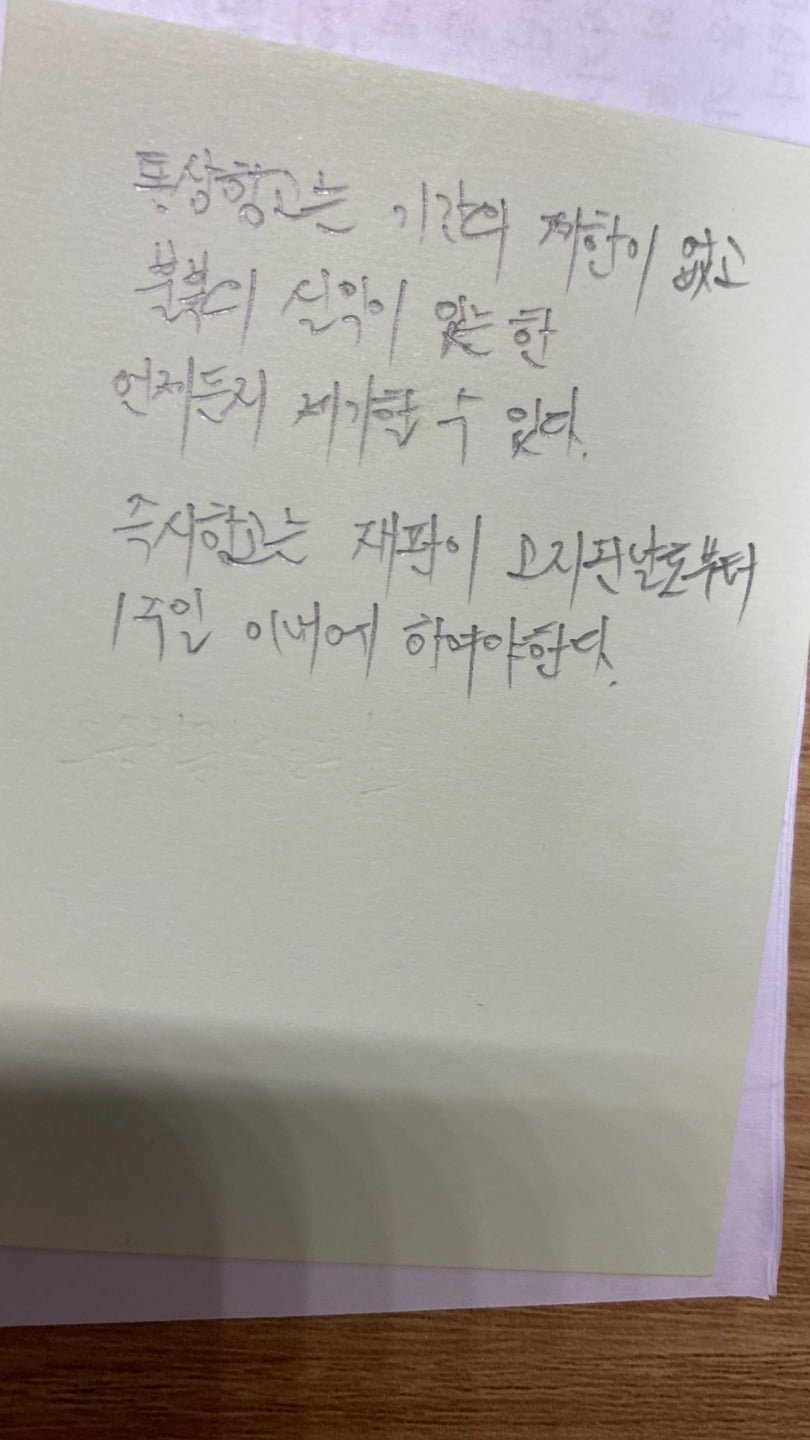 통상항고는 기간의 제한이 없고
불복의 실익이 있는 한
언제든지 제기할 수 있다.
즉시항고는 재판이 고지된날로부터
1주일 이내에 하여야한다.